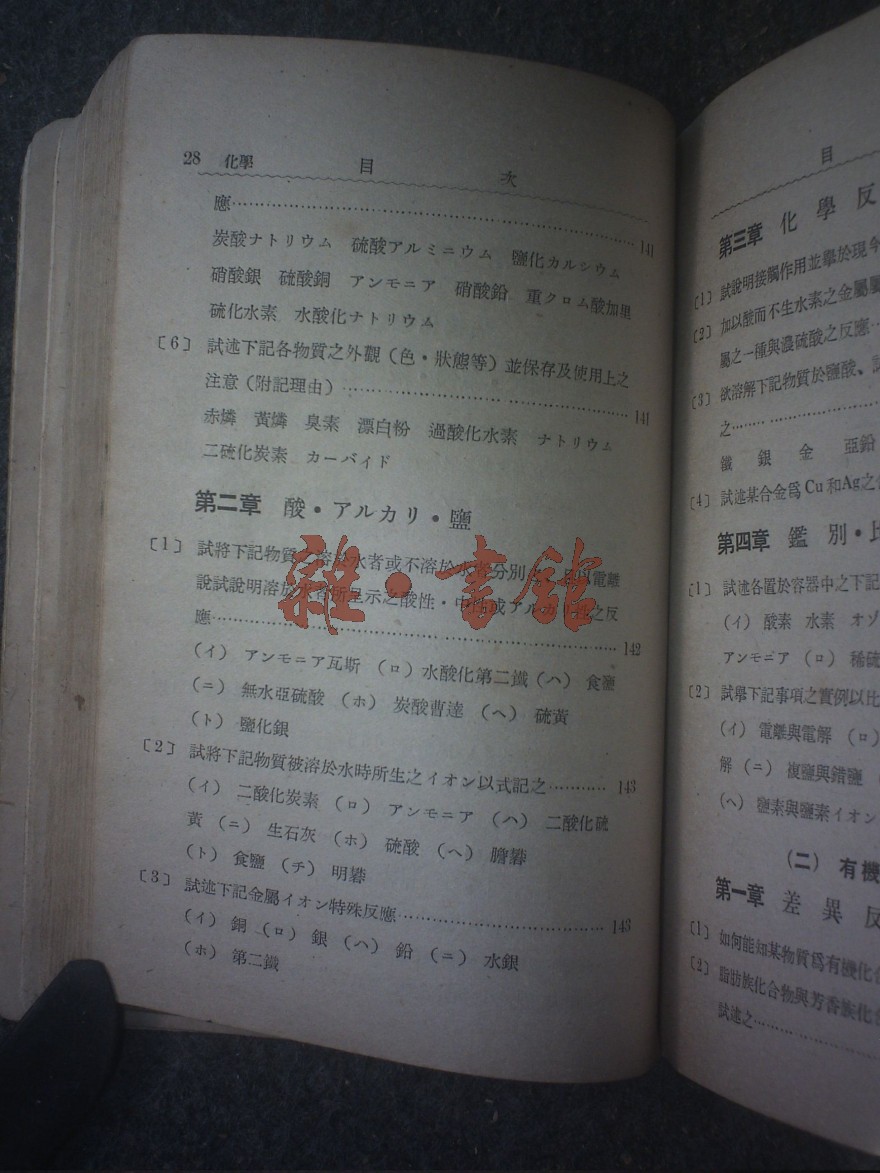 28 化學 目 次
應…………………………………………………… 141
炭酸ナトリウム 硫酸アルミニウム 鹽化カルシウム
硝酸銀 硫酸銅 アンモニア 硝酸鉛 重クロム酸加里
硫化水素 水酸化ナトリウム
〔6〕 試述下記各物質之外觀（色・狀態等）並保存及使用上之
注意（附記理由）…………………………………… 141
赤燐 黃燐 臭素 漂白粉 過酸化水素 ナトリウム
二硫化炭素 カーバイド
第二章 酸・アルカリ・鹽
〔1〕 試將下記物質 溶於水者或不溶於水者分別 電離
說試說明溶於水者所呈示之酸性・中性或アルカリ性之反
應…………………………………………………… 142
（イ） アンモニア瓦斯 （ロ）水酸化第二鐵（ハ） 食鹽
（ニ） 無水亞硫酸 （ホ） 炭酸曹達 （ヘ） 硫黃
（ト） 鹽化銀
〔2〕 試將下記物質被溶於水時所生之イオン以式記之………… 143
（イ） 二酸化炭素 （ロ） アンモニア （ハ） 二酸化硫
黃（ニ） 生石灰（ホ） 硫酸（ヘ） 膽礬
（ト） 食鹽（チ） 明礬
〔3〕 試述下記金屬イオン特殊反應…………………………… 143
（イ） 銅（ロ） 銀（ハ） 鉛（ニ） 水銀
（ホ） 第二鐵
雜・書館
目
第三章 化 學 反
〔1〕 試說明接觸作用並擧於現今
〔2〕 加以酸而不生水素之金屬屬
屬之一種與濃硫酸之反應…
〔3〕 欲溶解下記物質於鹽酸、
之……
鐵 銀 金 亞鉛
〔4〕 試述某合金爲Cu和Ag之
第四章 鑑 別・比
〔1〕 試述各置於容器中之下記
（イ） 酸素 水素 オゾ
アンモニア（ロ） 稀硫
〔2〕 試擧下記事項之實例以比
（イ） 電離與電解（ロ）
解（ニ） 複鹽與錯鹽
（ヘ） 鹽素與鹽素イオン
（二） 有機
第一章 差 異 反
〔1〕 如何能知某物質爲有機化合
〔2〕 脂肪族化合物與芳香族化合
試述之……